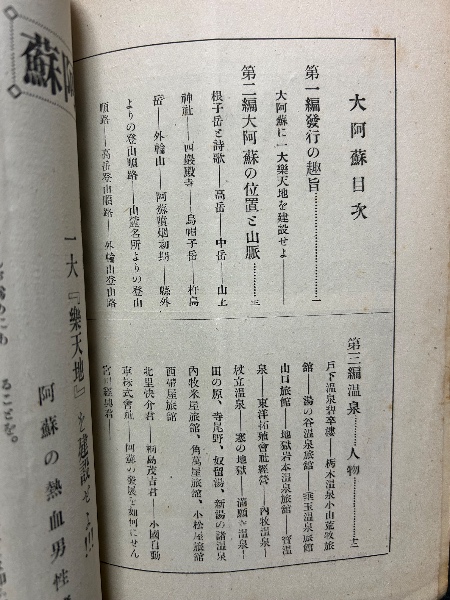 大阿蘇目次
第一編發行の趣旨…………一
大阿蘇に一大樂天地を建設せよ
第二編大阿蘇の位置と山脈…………三
根子岳と詩歌――高岳――中岳――山上
神社――西巖殿寺――烏帽子岳――杵島
岳――外輪山――阿蘇噴烟初期――縣外
よりの登山順路――山霊名所よりの登山
順路――高岳登山順路――外輪山登山路
第三編温泉――人物…………十二
戸下温泉碧翠樓――栃木温泉小山荒牧旅
館――湯の谷温泉旅館――垂玉温泉旅館
山口旅館――地獄岩本温泉旅館――寶温
泉――東洋拓殖會社經營――內牧温泉――
杖立温泉――寒の地獄――満願寺温泉――
田の原、寺尾野、奴留湯、新湯の諸温泉
內牧米屋旅館、角萬屋旅館、小松屋旅館
北里快介君――小國自動
車株式會社――阿蘇の發展を如何にせん
蘇阿
一大『樂天地』を建設せよ!!!
阿蘇の熱血男性
ることを。